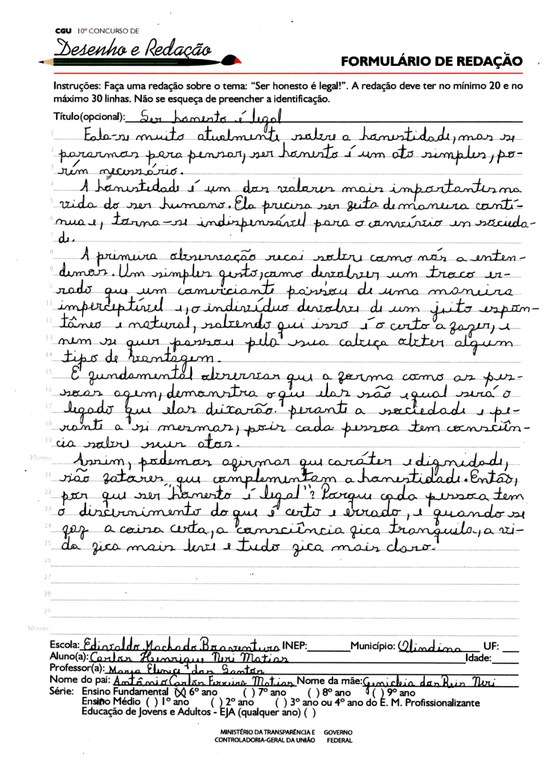 CGU 10º CONCURSO DE
Desenho e Redação
FORMULÁRIO DE REDAÇÃO
Instruções: Faça uma redação sobre o tema: "Ser honesto é legal!". A redação deve ter no mínimo 20 e no
máximo 30 linhas. Não se esqueça de preencher a identificação.
Título(opcional): Ser honesto é legal
Fala-se muito atualmente sobre a honestidade, mas se
pararmos para pensar, ser honesto é um ato simples, po-
rém necessário.
A honestidade é um dos valores mais importantes na
vida do ser humano. Ela precisa ser feita de maneira contí-
nua e, torna-se indispensável para o convívio em socieda-
de.
A primeira observação recai sobre como nós a enten-
demos. Um simples gesto, como devolver um troco er-
rado que um comerciante passou de uma maneira
imperceptível e, o indivíduo devolve de um jeito espon-
tâneo e natural, sabendo que isso é o certo a fazer, e
nem se quer passou pela sua cabeça obter algum
tipo de vantagem.
É fundamental observar que a forma como as pes-
soas agem, demonstra o que elas são e qual será o
legado que elas deixarão perante a sociedade e pe-
rante a si mesmas, pois cada pessoa tem consciên-
cia sobre seus atos.
Assim, podemos afirmar que caráter e dignidade,
são fatores que complementam a honestidade. Então,
por que ser "honesto é legal"? Porque cada pessoa tem
o discernimento do que é certo e errado, e quando se
fez a coisa certa, a consciência fica tranquila, a vi-
da fica mais leve e tudo fica mais claro.
Escola: Edivaldo Machado Boaventura INEP: Município: Olindina UF:
Aluno(a): Carlos Henrique Neri Matias Idade:
Professor(a): Maria dos Santos
Nome do pai: Antônio Carlos Ferreira Matias Nome da mãe: dos Reis Neri
Série: Ensino Fundamental (X) 6º ano ( ) 7º ano ( ) 8º ano ( ) 9º ano
Ensino Médio ( ) 1º ano ( ) 2º ano ( ) 3º ano ou 4º ano do E. M. Profissionalizante
Educação de Jovens e Adultos - EJA (qualquer ano) ( )
MINISTÉRIO DA TRANSPARÊNCIA E GOVERNO
CONTROLADORIA-GERAL DA UNIÃO FEDERAL